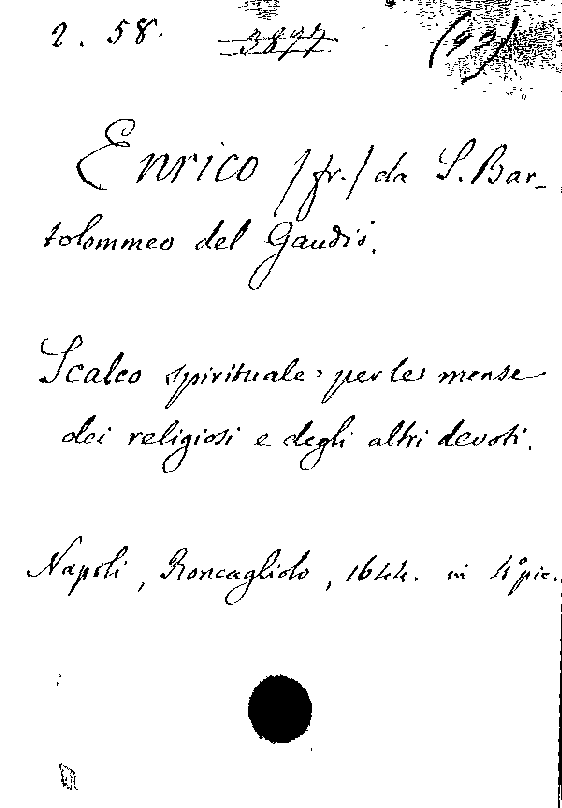 2. 58. 3897 (93)
Enrico /fr./ da S. Bar-
tolommeo del Gaudio.
Scalco spirituale per le mense
dei religiosi e degli altri devoti.
Napoli, Roncagliolo, 1644. in 4º pic.